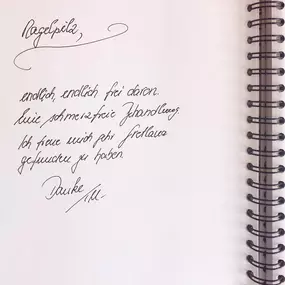 Nagelpilz,
endlich, endlich frei davon.
Eine schmerzfreie Behandlung.
Ich freue mich sehr Svetlana
gefunden zu haben.
Danke
M.